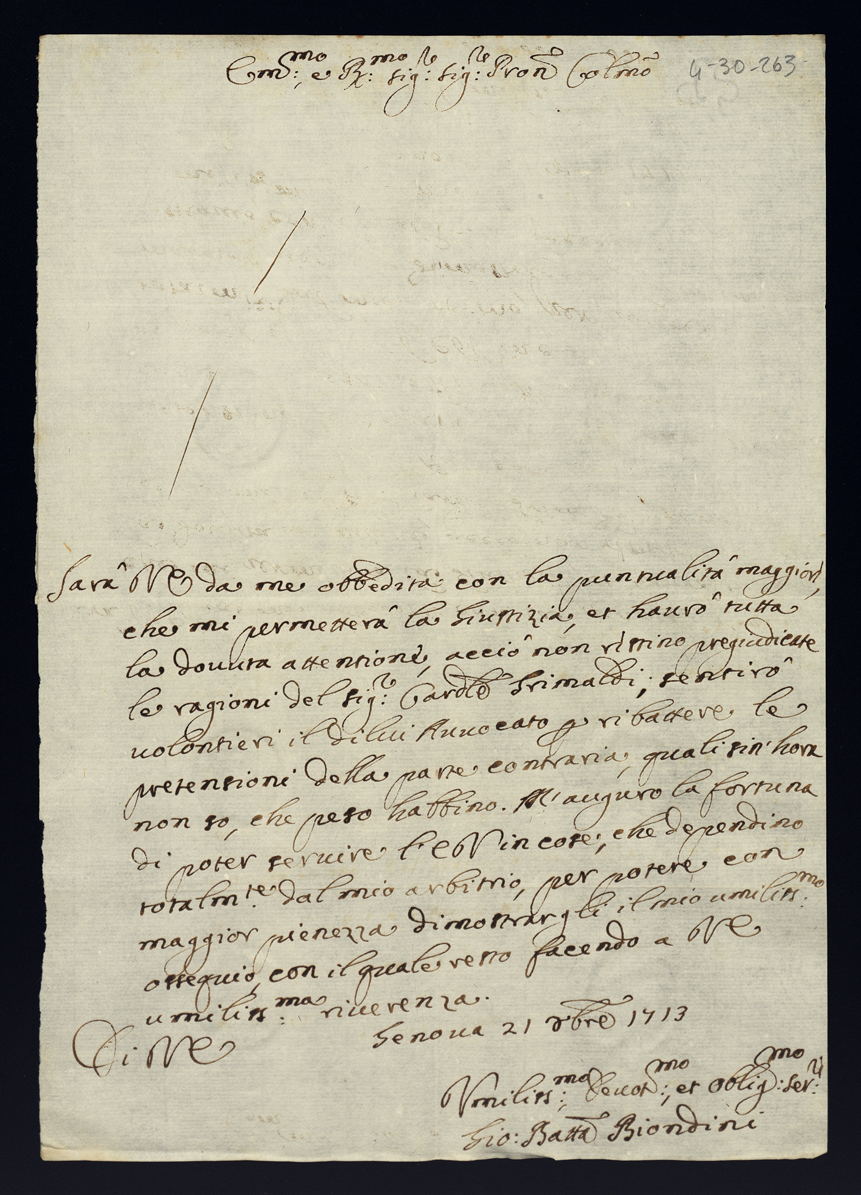 Em.mo e R.mo sig.re sig.re Pron Colmo
4-30-263
Sarà VE da me obbedita con la puntualità maggior,
che mi permetterà la Giustizia, et haurò tutta
la douuta attentione, acciò non restino pregiudicate
le ragioni del sig.r Cardle Grimaldi; sentirò
uolontieri il di lui Auuocato p ribattere le
pretensioni della parte contraria, quali sin'hora
non so, che peso habbino. M'auguro la fortuna
di poter seruire l'EV in cose, che dependino
totalm.te dal mio arbitrio, per potere con
maggior pienezza dimostrargli il mio umiliss.mo
ossequio, con il quale resto facendo a VE
umiliss.ma riuerenza.
Genoua 21 bre 1713
Di VE
Vmiliss.mo Deuot.mo, et oblig.mo ser.
Gio: Batta Biondini